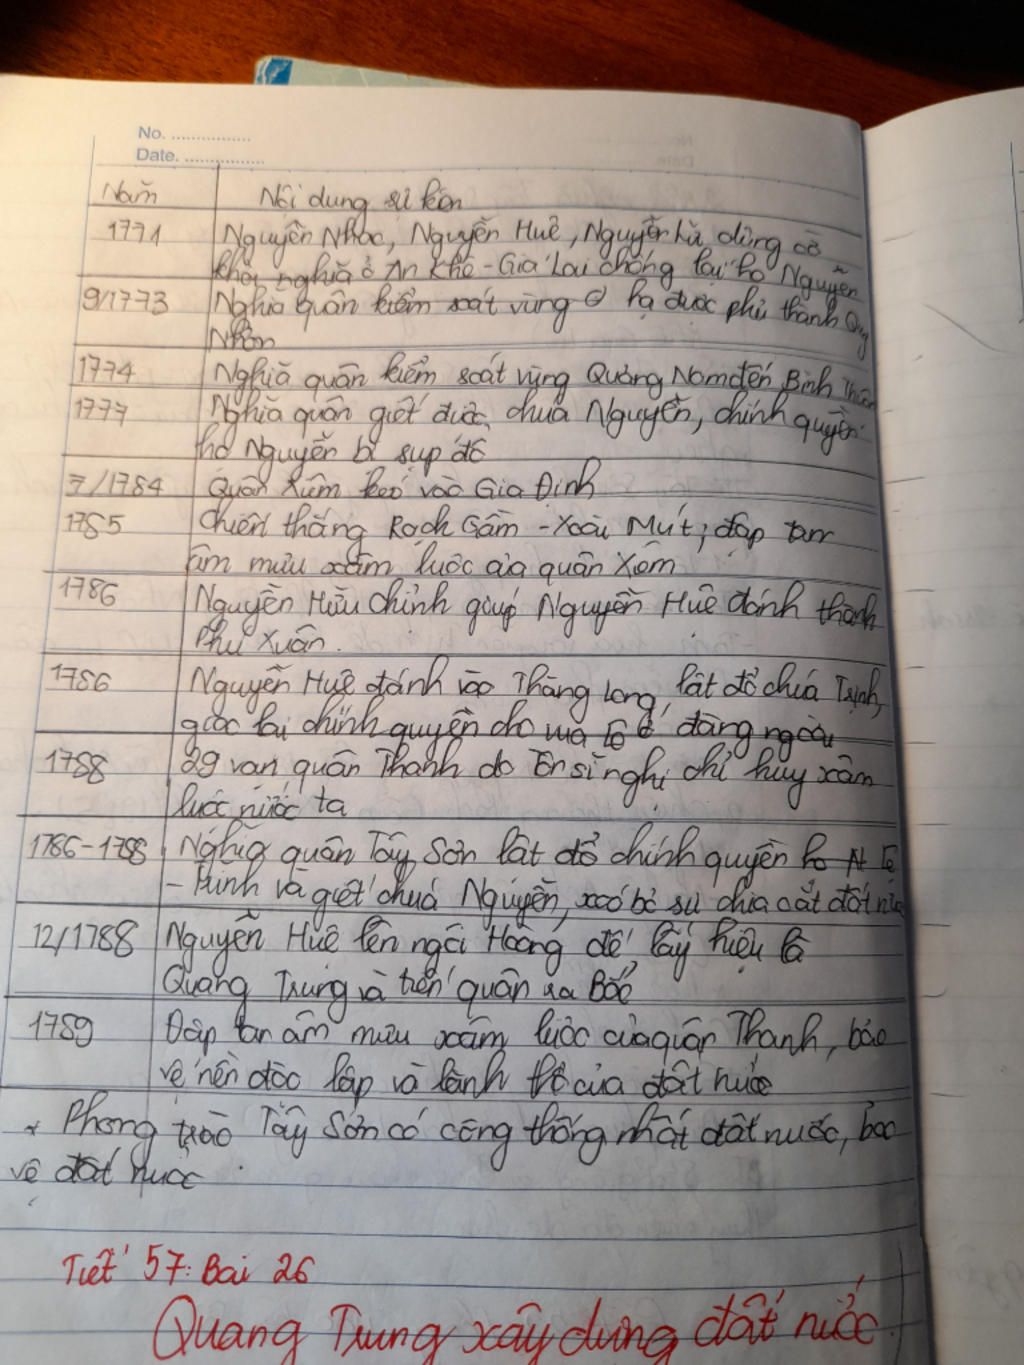 No. ................
Date. ................
Năm Nội dung sự kiện
1771 Nguyễn Nhạc, Nguyễn Huệ, Nguyễn Lữ dựng cờ
khởi nghĩa ở An Khê - Gia Lai chống lại họ Nguyễn
9/1773 Nghĩa quân kiểm soát vùng hạ được phủ thành Quy
Nhơn
1774 Nghĩa quân kiểm soát vùng Quảng Nam đến Bình Thuận
1777 Nghĩa quân giết được chúa Nguyễn, chính quyền
họ Nguyễn bị sụp đổ
7/1784 Quân Xiêm kéo vào Gia Định
1785 Chiến thắng Rạch Gầm - Xoài Mút, đập tan
âm mưu xâm lược của quân Xiêm
1786 Nguyễn Hữu Chỉnh giúp Nguyễn Huệ đánh thành
Phú Xuân.
1786 Nguyễn Huệ đánh vào Thăng Long, lật đổ chúa Trịnh,
giao lại chính quyền cho vua Lê ở đàng ngoài
1788 29 vạn quân Thanh do Tôn sĩ nghị chỉ huy xâm
lược nước ta
1786-1788 Nghĩa quân Tây Sơn lật đổ chính quyền họ N Lê
- Trịnh và giết chúa Nguyễn, xoá bỏ sự chia cắt đất nước
12/1788 Nguyễn Huệ lên ngôi Hoàng đế, lấy hiệu là
Quang Trung và tiến quân ra Bắc
1789 Đập tan âm mưu xâm lược của quân Thanh, bảo
vệ nền độc lập và lãnh thổ của đất nước
* Phong trào Tây Sơn có công thống nhất đất nước, bảo
vệ đất nước.
Tiết 57: Bài 26
Quang Trung xây dựng đất nước